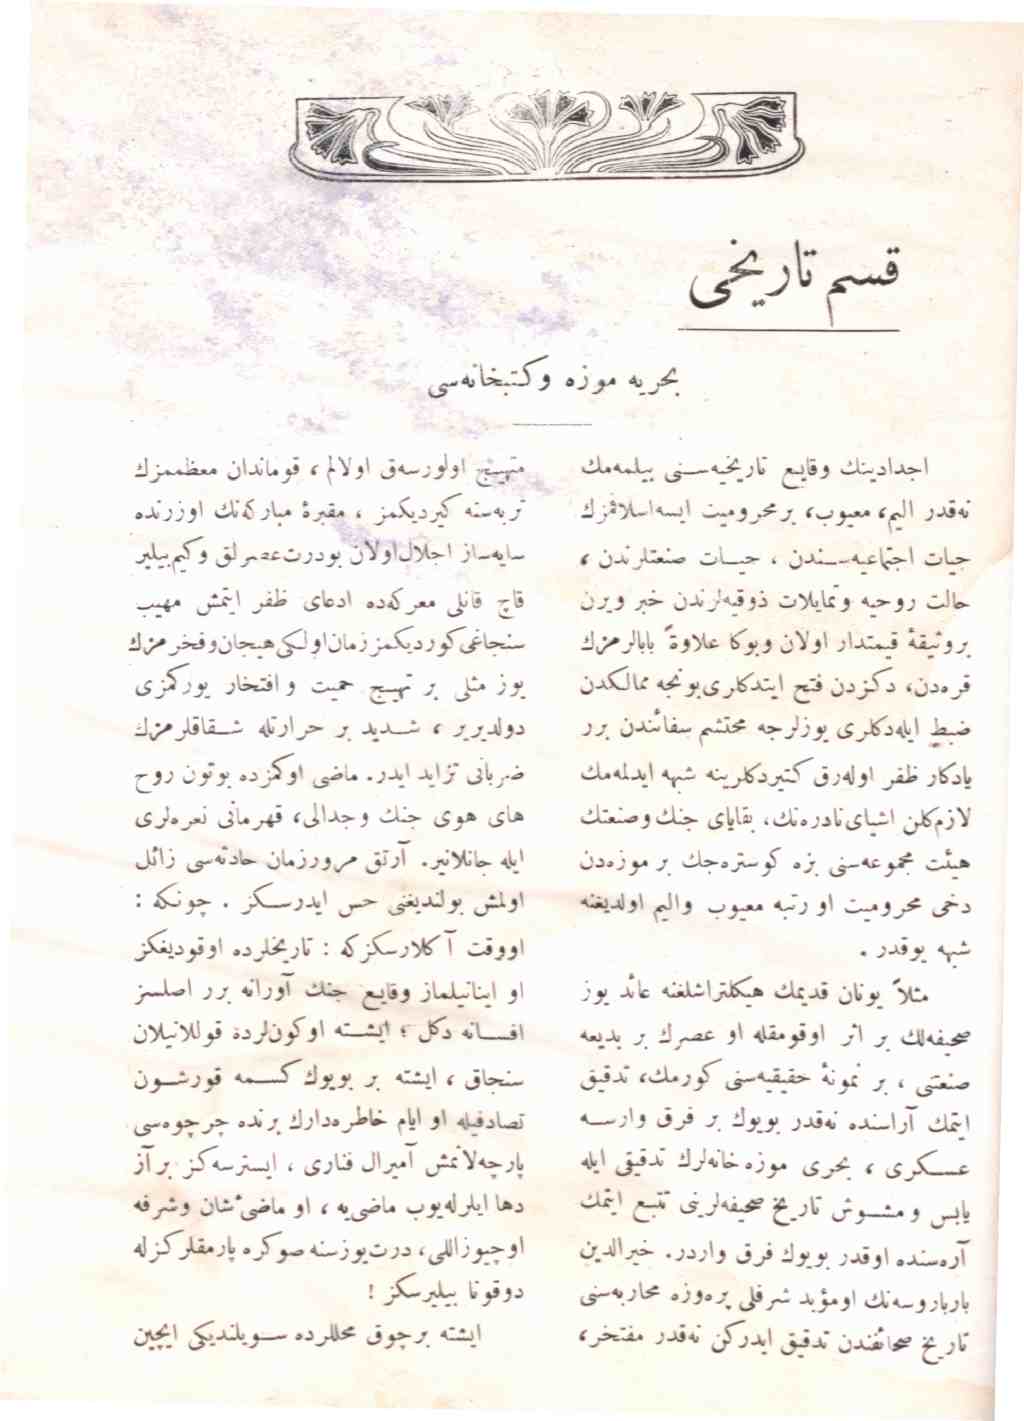 قسم تاریخی
بحریه موزه وکتبخانه‌سی
اجدادینك وقایع تاریخیه‌سنی بیلمه‌مك
نه‌قدر الیم، معیوب، برمحرومیت ایسه‌اسلافمزك
حیات اجتماعیه‌سندن ، حیات صنعتلرندن ،
حالت روحیه وتمایلات ذوقیه‌لرندن خبر ویرن
بروثیقهٔ قیمتدار اولان وبوکا علاوةً بابالرمزك
قره‌دن، دکزدن فتح ایتدکلری‌بونجه ممالکدن
ضبط ایله‌دکلری یوزلرجه محتشم سفائندن برر
یادکار ظفر اوله‌رق کتیردکلرینه شبهه ایدلمه‌مك
لازم‌کلن اشیای‌نادره‌نك، بقایای جنك وصنعتك
هیئت مجموعه‌سنی بزه کوستره‌جك بر موزه‌دن
دخی محرومیت او رتبه معیوب والیم اولدیغنه
شبهه یوقدر .
مثلاً یونان قدیمك هیکلتراشلغنه عائد یوز
صحیفه‌لك بر اثر اوقومقله او عصرك بر بدیعه
صنعتی ، بر نمونهٔ حقیقیه‌سنی کورمك، تدقیق
ایتمك آراسنده نه‌قدر بویوك بر فرق وارسه
عسکری ، بحری موزه‌خانه‌لرك تدقیقی ایله
یابس ومشوش تاریخ صحیفه‌لرینی تتبع ایتمك
آره‌سنده اوقدر بویوك فرق واردر. خیرالدین
بارباروسه‌نك اومؤبد شرفلی پره‌وزه محاربه‌سنی
تاریخ صحائفندن تدقیق ایدرکن نه‌قدر مفتخر،
متهیج اولورسه‌ق اولالم ، قوماندان معظممزك
تربه‌سنه کیردیکمز ، مقبرهٔ مبارکه‌نك اوزرنده
سایه‌ساز اجلال‌اولان بودرت‌عصرلق وکیم‌بیلیر
قاچ قانلی معرکه‌ده ادعای ظفر ایتمش مهیب
سنجاغی‌کوردیکمز زمان‌اولکی‌هیجان‌وفخرمزك
یوز مثلی بر تهییج حمیت وافتخار یورکمزی
دولدیریر ، شدید بر حرارتله شقاقلرمزك
ضربانی تزاید ایدر. ماضی اوکمزده بوتون روح
های هوی جنك وجدالی، قهرمانی نعره‌لری
ایله جانلانیر. آرتق مرورزمان حادثه‌سی زائل
اولمش بولندیغنی حس ایدرسکز . چونکه :
اووقت آکلارسکزکه : تاریخلرده اوقودیغکز
او اینانیلماز وقایع جنك آورانه برر اصلسز
افسانه دکل ؛ ایشته اوکون‌لرده قوللانیلان
سنجاق ، ایشته بر بویوك کسمه قورشون
تصادفیله او ایام خاطره‌دارك برنده چرچوه‌سی
پارچه‌لانمش آمیرال فناری ، ایسترسه‌کز برآز
دها ایلرله‌یوب ماضی‌یه ، او ماضیٔ‌شان وشرفه
اوچیوزاللی، درت‌یوزسنه صوکره پارمقلرکزله
دوقونا بیلیرسکز !
ایشته برچوق محللرده سویلندیکی ایچین